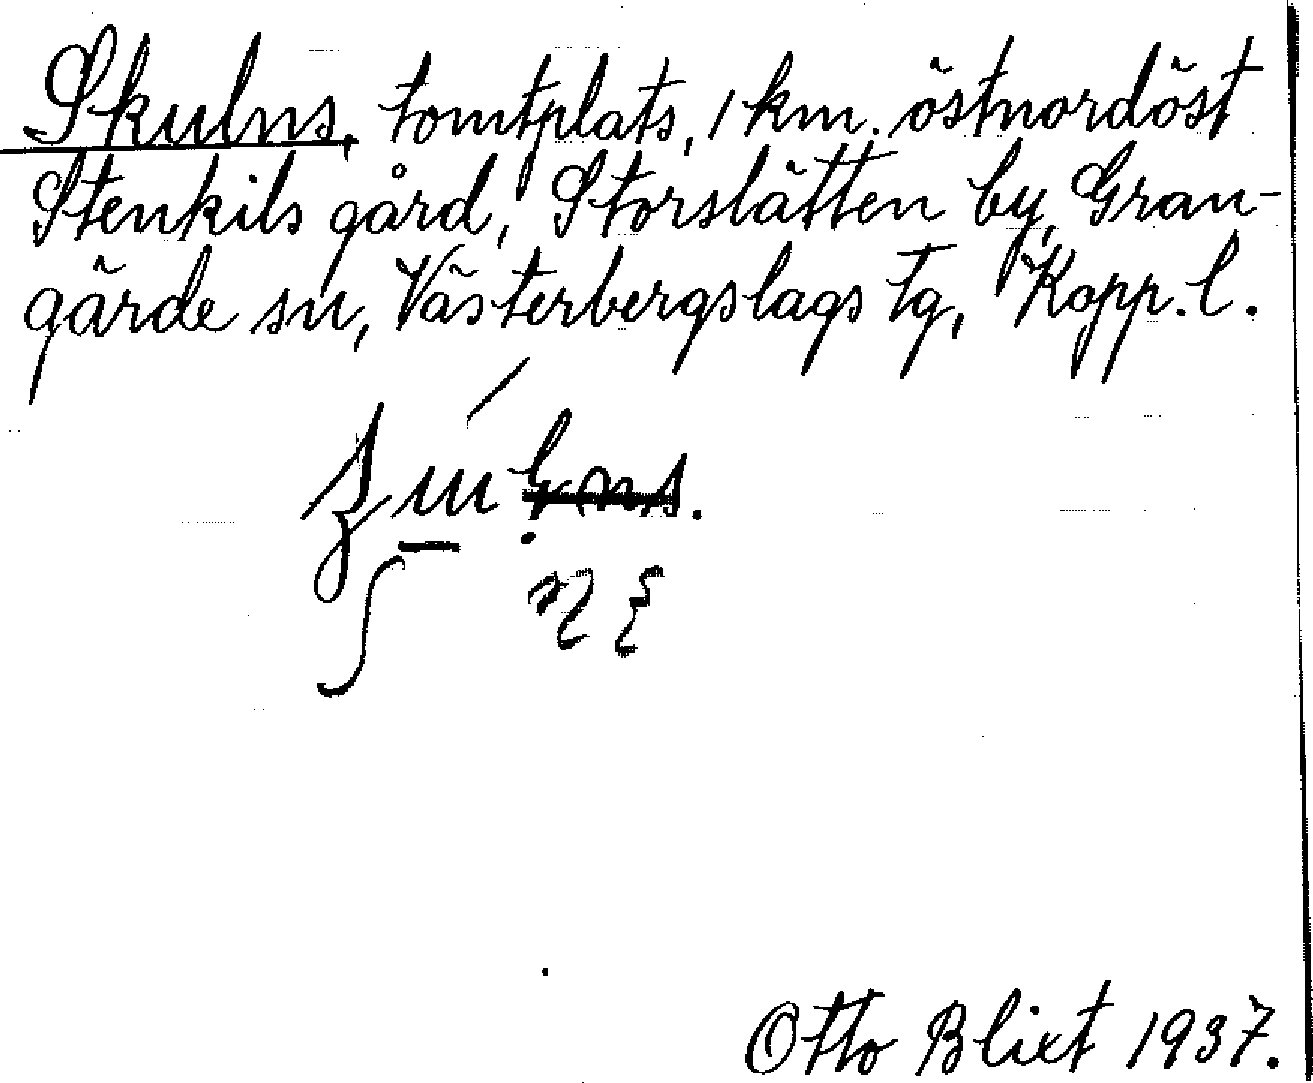 Skulns, tomtplats, 1 km. östnordöst
Stenkils gård, Storslätten by, Gran-
gärde sn, Västerbergslags tg, Kopp. l.
Otto Blixt 1937.